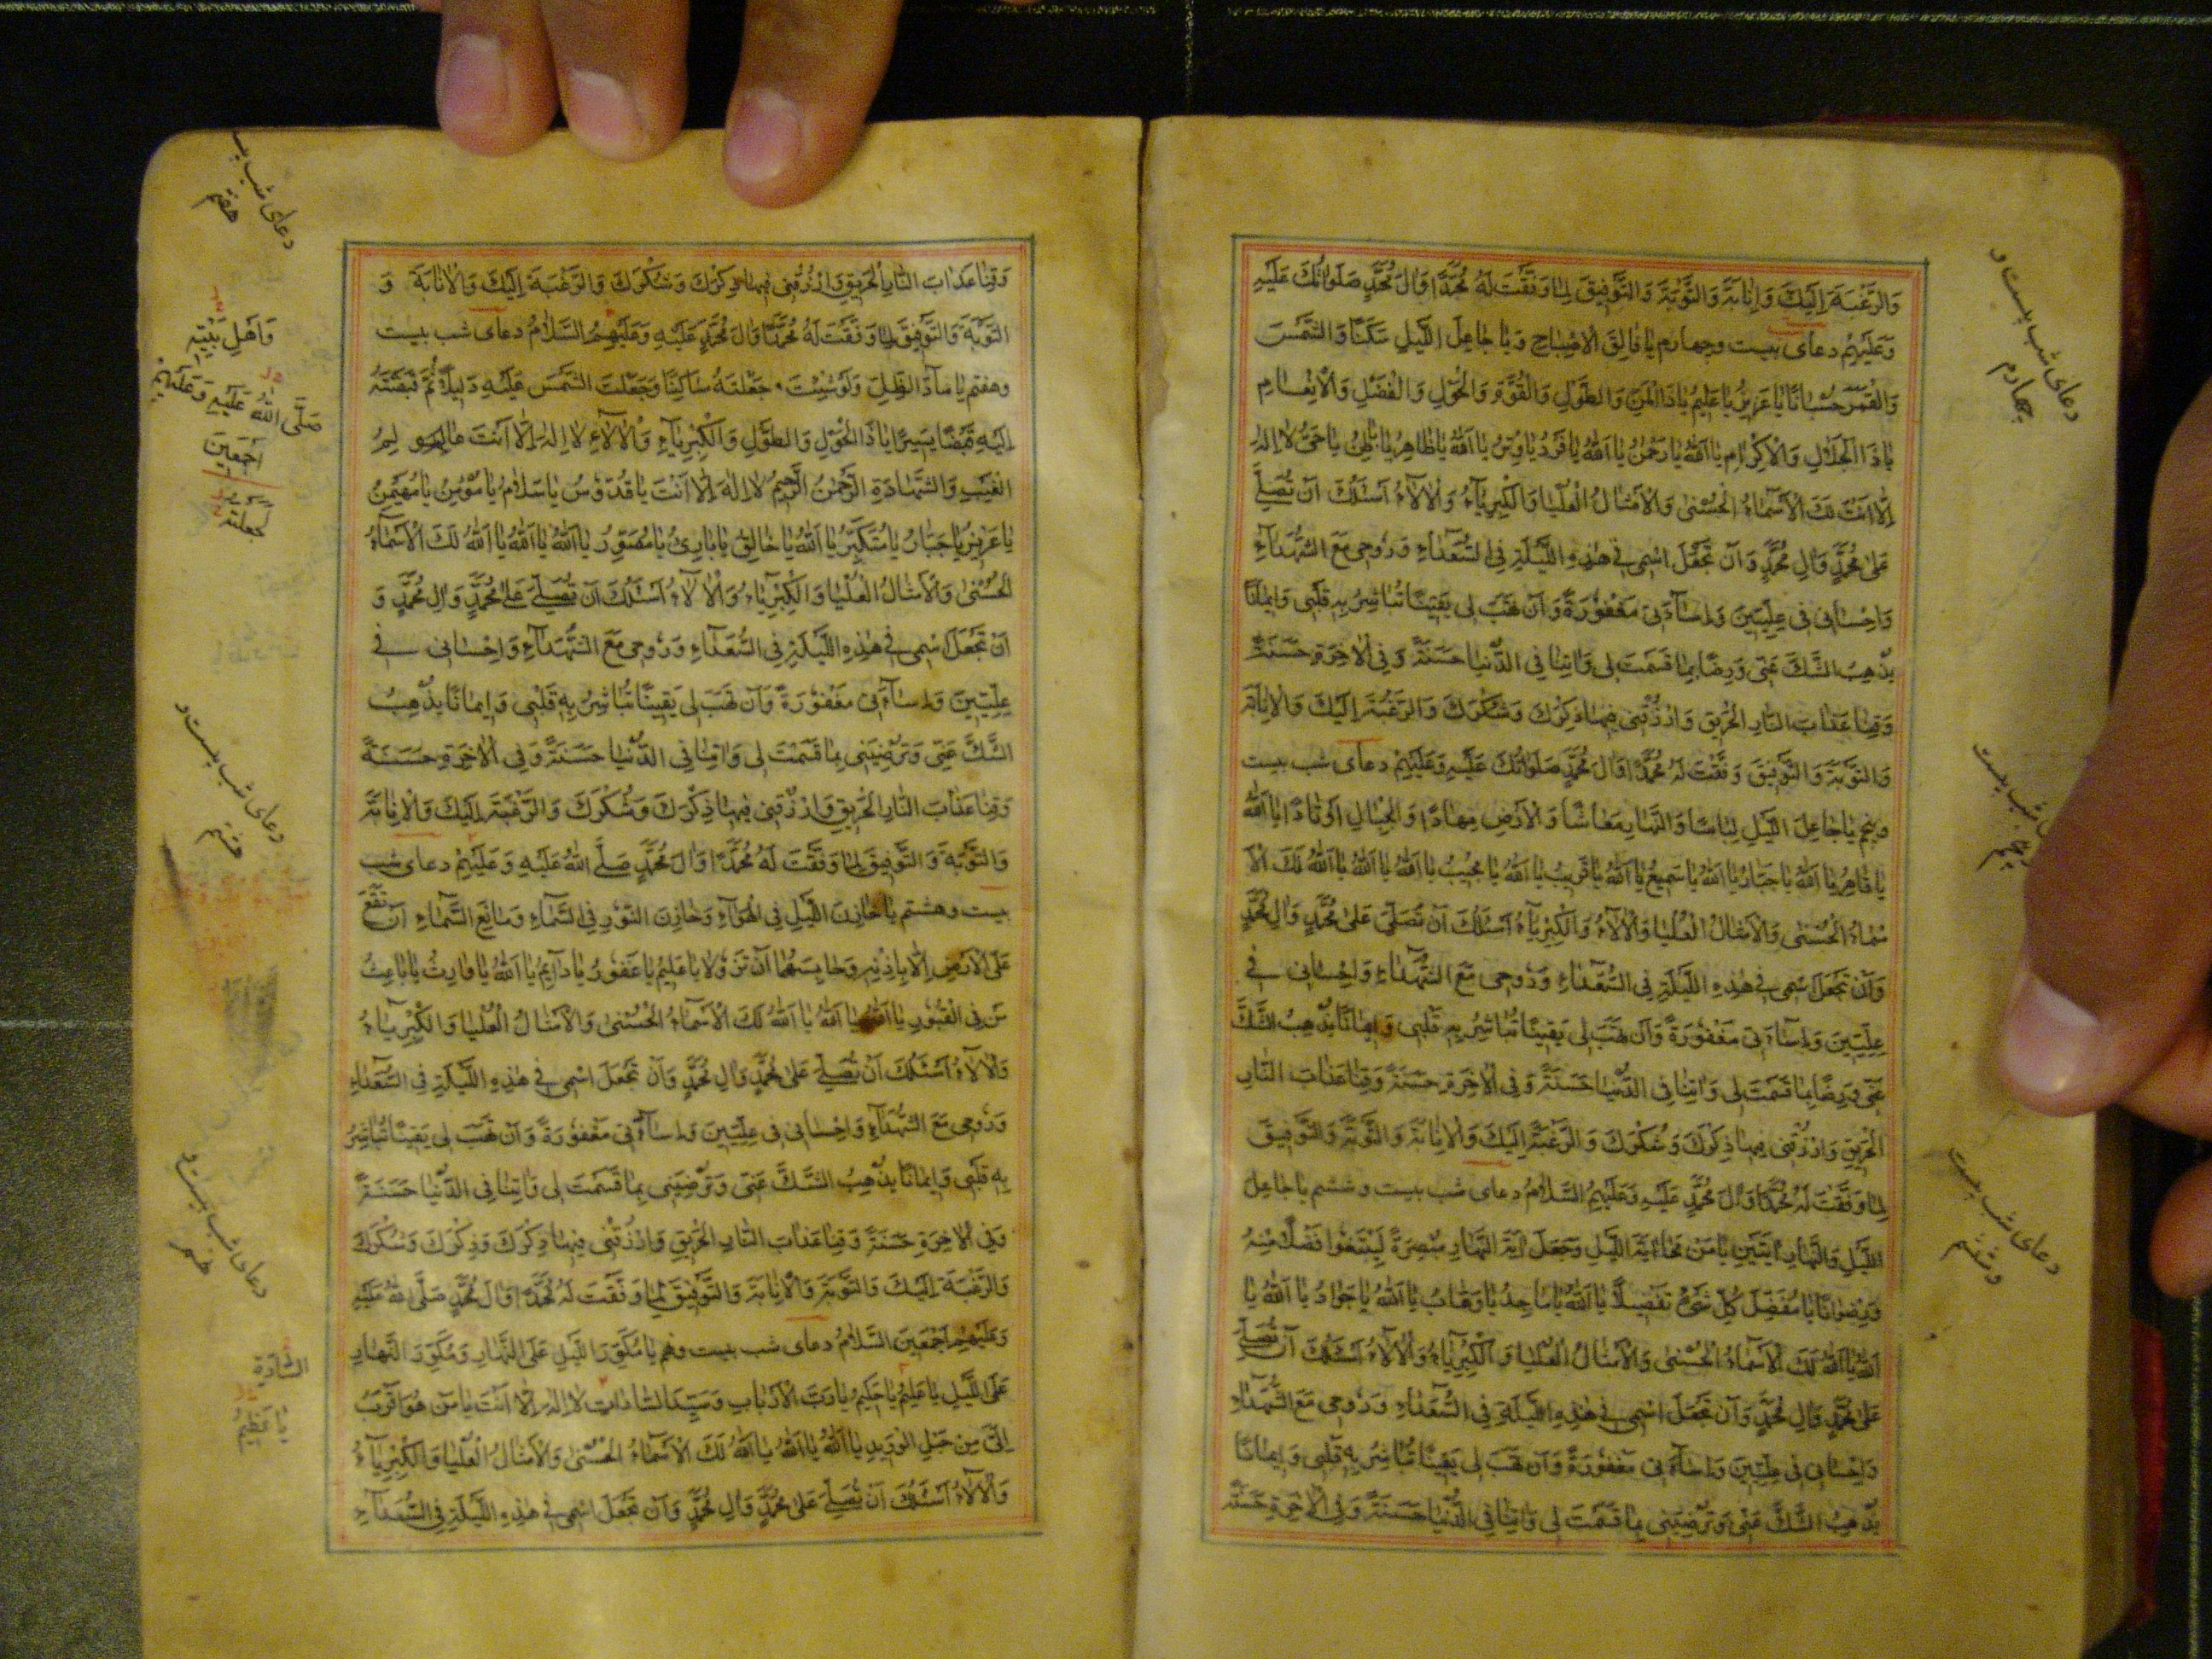 وَالرَّغْبَةَ اِلَيْكَ وَاِنَابَةً وَالتَّوْبَةَ وَالتَّوْفِيقَ لِمَا وَفَّقْتَ لَهُ مُحَمَّدًا وَالَ مُحَمَّدٍ صَلَوَاتُكَ عَلَيْهِ
وَعَلَيْهِمْ دعای بیست وچهارم يَا فَالِقَ الْاِصْبَاحِ وَيَا جَاعِلَ اللَّيْلِ سَكَنًا وَالشَّمْسَ
وَالْقَمَرَ حُسْبَانًا يَا عَزِيزُ يَا عَلِيمُ يَا ذَا الْمَنِّ وَالطَّوْلِ وَالْقُوَّةِ وَالْحَوْلِ وَالْفَضْلِ وَالْاِنْعَامِ
يَا ذَا الْجَلَالِ وَالْاِكْرَامِ يَا اَللّٰهُ يَا رَحْمٰنُ يَا اَللّٰهُ يَا فَرْدُ يَا وِتْرُ يَا اَللّٰهُ يَا ظَاهِرُ يَا بَاطِنُ يَا حَىُّ لَا اِلٰهَ
اِلَّا اَنْتَ لَكَ الْاَسْمَاءُ الْحُسْنٰى وَالْاَمْثَالُ الْعُلْيَا وَالْكِبْرِيَاءُ وَالْاٰلَاءُ اَسْئَلُكَ اَنْ تُصَلِّىَ
عَلٰى مُحَمَّدٍ وَالِ مُحَمَّدٍ وَاَنْ تَجْعَلَ اسْمِى فِى هٰذِهِ اللَّيْلَةِ فِى السُّعَدَاءِ وَرُوحِى مَعَ الشُّهَدَاءِ
وَاِحْسَانِى فِى عِلِّيِّينَ وَاِسَاءَتِى مَغْفُورَةً وَاَنْ تَهَبَ لِى يَقِينًا تُبَاشِرُ بِهِ قَلْبِى وَاِيمَانًا
يُذْهِبُ الشَّكَّ عَنِّى وَرِضًا بِمَا قَسَمْتَ لِى وَاٰتِنَا فِى الدُّنْيَا حَسَنَةً وَفِى الْاٰخِرَةِ حَسَنَةً
وَقِنَا عَذَابَ النَّارِ الْحَرِيقِ وَارْزُقْنِى فِيهَا ذِكْرَكَ وَشُكْرَكَ وَالرَّغْبَةَ اِلَيْكَ وَالْاِنَابَةَ
وَالتَّوْبَةَ وَالتَّوْفِيقَ وَفَّقْتَ لَهُ مُحَمَّدًا وَالَ مُحَمَّدٍ صَلَوَاتُكَ عَلَيْهِ وَعَلَيْهِمْ دعای شب بیست
وپنجم يَا جَاعِلَ اللَّيْلِ لِبَاسًا وَالنَّهَارِ مَعَاشًا وَالْاَرْضِ مِهَادًا وَالْجِبَالِ اَوْتَادًا يَا اَللّٰهُ
يَا قَاهِرُ يَا اَللّٰهُ يَا جَبَّارُ يَا اَللّٰهُ يَا سَمِيعُ يَا اَللّٰهُ يَا قَرِيبُ يَا اَللّٰهُ يَا مُجِيبُ يَا اَللّٰهُ يَا اَللّٰهُ يَا اَللّٰهُ لَكَ الْاَ
سْمَاءُ الْحُسْنٰى وَالْاَمْثَالُ الْعُلْيَا وَالْاٰلَاءُ وَالْكِبْرِيَاءُ اَسْئَلُكَ اَنْ تُصَلِّىَ عَلٰى مُحَمَّدٍ وَالِ مُحَمَّدٍ
وَاَنْ تَجْعَلَ اسْمِى فِى هٰذِهِ اللَّيْلَةِ فِى السُّعَدَاءِ وَرُوحِى مَعَ الشُّهَدَاءِ وَاِحْسَانِى فِى
عِلِّيِّينَ وَاِسَاءَتِى مَغْفُورَةً وَاَنْ تَهَبَ لِى يَقِينًا تُبَاشِرُ بِهِ قَلْبِى وَاِيمَانًا يُذْهِبُ الشَّكَّ
عَنِّى وَرِضًا بِمَا قَسَمْتَ لِى وَاٰتِنَا فِى الدُّنْيَا حَسَنَةً وَفِى الْاٰخِرَةِ حَسَنَةً وَقِنَا عَذَابَ النَّارِ
الْحَرِيقِ وَارْزُقْنِى فِيهَا ذِكْرَكَ وَشُكْرَكَ وَالرَّغْبَةَ اِلَيْكَ وَالْاِنَابَةَ وَالتَّوْبَةَ وَالتَّوْفِيقَ
لِمَا وَفَّقْتَ لَهُ مُحَمَّدًا وَالَ مُحَمَّدٍ عَلَيْهِ وَعَلَيْهِمُ السَّلَامُ دعای شب بیست وششم يَا جَاعِلَ
اللَّيْلِ وَالنَّهَارِ اٰيَتَيْنِ يَا مَنْ مَحَا اٰيَةَ اللَّيْلِ وَجَعَلَ اٰيَةَ النَّهَارِ مُبْصِرَةً لِيَبْتَغُوا فَضْلًا مِنْهُ
وَرِضْوَانًا يَا مُفَضِّلَ كُلِّ شَىْءٍ تَفْصِيلًا يَا اَللّٰهُ يَا مَاجِدُ يَا وَهَّابُ يَا اَللّٰهُ يَا جَوَادُ يَا اَللّٰهُ يَا
اَللّٰهُ يَا اَللّٰهُ لَكَ الْاَسْمَاءُ الْحُسْنٰى وَالْاَمْثَالُ الْعُلْيَا وَالْكِبْرِيَاءُ وَالْاٰلَاءُ اَسْئَلُكَ اَنْ تُصَلِّىَ
عَلٰى مُحَمَّدٍ وَالِ مُحَمَّدٍ وَاَنْ تَجْعَلَ اسْمِى فِى هٰذِهِ اللَّيْلَةِ فِى السُّعَدَاءِ وَرُوحِى مَعَ الشُّهَدَاءِ
وَاِحْسَانِى فِى عِلِّيِّينَ وَاِسَاءَتِى مَغْفُورَةً وَاَنْ تَهَبَ لِى يَقِينًا تُبَاشِرُ بِهِ قَلْبِى وَاِيمَانًا
يُذْهِبُ الشَّكَّ عَنِّى وَتُرْضِيَنِى بِمَا قَسَمْتَ لِى وَاٰتِنَا فِى الدُّنْيَا حَسَنَةً وَفِى الْاٰخِرَةِ حَسَنَةً
دعای شب بیست و
چهارم
شب بیست
پنجم
دعای شب بیست
و ششم
وَقِنَا عَذَابَ النَّارِ الْحَرِيقِ وَارْزُقْنِى فِيهَا ذِكْرَكَ وَشُكْرَكَ وَالرَّغْبَةَ اِلَيْكَ وَالْاِنَابَةَ وَ
التَّوْبَةَ وَالتَّوْفِيقَ لِمَا وَفَّقْتَ لَهُ مُحَمَّدًا وَالَ مُحَمَّدٍ عَلَيْهِ وَعَلَيْهِمُ السَّلَامُ دعای شب بیست
وهفتم يَا مَادَّ الظِّلِّ وَلَوْ شِئْتَ جَعَلْتَهُ سَاكِنًا وَجَعَلْتَ الشَّمْسَ عَلَيْهِ دَلِيلًا ثُمَّ قَبَضْتَهُ
اِلَيْهِ قَبْضًا يَسِيرًا يَا ذَا الْحَوْلِ وَالطَّوْلِ وَالْكِبْرِيَاءِ وَالْاٰلَاءِ لَا اِلٰهَ اِلَّا اَنْتَ عَالِمُ
الْغَيْبِ وَالشَّهَادَةِ الرَّحْمٰنُ الرَّحِيمُ لَا اِلٰهَ اِلَّا اَنْتَ يَا قُدُّوسُ يَا سَلَامُ يَا مُؤْمِنُ يَا مُهَيْمِنُ
يَا عَزِيزُ يَا جَبَّارُ يَا مُتَكَبِّرُ يَا اَللّٰهُ يَا خَالِقُ يَا بَارِئُ يَا مُصَوِّرُ يَا اَللّٰهُ يَا اَللّٰهُ يَا اَللّٰهُ لَكَ الْاَسْمَاءُ
الْحُسْنٰى وَالْاَمْثَالُ الْعُلْيَا وَالْكِبْرِيَاءُ وَالْاٰلَاءُ اَسْئَلُكَ اَنْ تُصَلِّىَ عَلٰى مُحَمَّدٍ وَالِ مُحَمَّدٍ وَ
اَنْ تَجْعَلَ اسْمِى فِى هٰذِهِ اللَّيْلَةِ فِى السُّعَدَاءِ وَرُوحِى مَعَ الشُّهَدَاءِ وَاِحْسَانِى فِى
عِلِّيِّينَ وَاِسَاءَتِى مَغْفُورَةً وَاَنْ تَهَبَ لِى يَقِينًا تُبَاشِرُ بِهِ قَلْبِى وَاِيمَانًا يُذْهِبُ
الشَّكَّ عَنِّى وَتُرْضِيَنِى بِمَا قَسَمْتَ لِى وَاٰتِنَا فِى الدُّنْيَا حَسَنَةً وَفِى الْاٰخِرَةِ حَسَنَةً
وَقِنَا عَذَابَ النَّارِ الْحَرِيقِ وَارْزُقْنِى فِيهَا ذِكْرَكَ وَشُكْرَكَ وَالرَّغْبَةَ اِلَيْكَ وَالْاِنَابَةَ
وَالتَّوْبَةَ وَالتَّوْفِيقَ لِمَا وَفَّقْتَ لَهُ مُحَمَّدًا وَالَ مُحَمَّدٍ صَلَّى اللّٰهُ عَلَيْهِ وَعَلَيْهِمْ دعای شب
بیست وهشتم يَا خَازِنَ اللَّيْلِ فِى الْهَوَاءِ وَخَازِنَ النُّورِ فِى السَّمَاءِ وَمَانِعَ السَّمَاءِ اَنْ تَقَعَ
عَلَى الْاَرْضِ اِلَّا بِاِذْنِهِ وَحَابِسَهُمَا اَنْ تَزُولَا يَا عَلِيمُ يَا غَفُورُ يَا دَائِمُ يَا اَللّٰهُ يَا وَارِثُ يَا بَاعِثُ
مَنْ فِى الْقُبُورِ يَا اَللّٰهُ يَا اَللّٰهُ يَا اَللّٰهُ لَكَ الْاَسْمَاءُ الْحُسْنٰى وَالْاَمْثَالُ الْعُلْيَا وَالْكِبْرِيَاءُ
وَالْاٰلَاءُ اَسْئَلُكَ اَنْ تُصَلِّىَ عَلٰى مُحَمَّدٍ وَالِ مُحَمَّدٍ وَاَنْ تَجْعَلَ اسْمِى فِى هٰذِهِ اللَّيْلَةِ فِى السُّعَدَاءِ
وَرُوحِى مَعَ الشُّهَدَاءِ وَاِحْسَانِى فِى عِلِّيِّينَ وَاِسَاءَتِى مَغْفُورَةً وَاَنْ تَهَبَ لِى يَقِينًا تُبَاشِرُ
بِهِ قَلْبِى وَاِيمَانًا يُذْهِبُ الشَّكَّ عَنِّى وَتُرْضِيَنِى بِمَا قَسَمْتَ لِى وَاٰتِنَا فِى الدُّنْيَا حَسَنَةً
وَفِى الْاٰخِرَةِ حَسَنَةً وَقِنَا عَذَابَ النَّارِ الْحَرِيقِ وَارْزُقْنِى فِيهَا ذِكْرَكَ وَذِكْرَكَ وَشُكْرَكَ
وَالرَّغْبَةَ اِلَيْكَ وَالتَّوْبَةَ وَالْاِنَابَةَ وَالتَّوْفِيقَ لِمَا وَفَّقْتَ لَهُ مُحَمَّدًا وَالَ مُحَمَّدٍ صَلَّى اللّٰهُ عَلَيْهِ
وَعَلَيْهِمْ اَجْمَعِينَ السَّلَامُ دعای شب بیست ونهم يَا مُكَوِّرَ اللَّيْلِ عَلَى النَّهَارِ وَمُكَوِّرَ النَّهَارِ
عَلَى اللَّيْلِ يَا عَلِيمُ يَا حَكِيمُ يَا رَبَّ الْاَرْبَابِ وَسَيِّدَ السَّادَاتِ لَا اِلٰهَ اِلَّا اَنْتَ يَا مَنْ هُوَ اَقْرَبُ
اِلَىَّ مِنْ حَبْلِ الْوَرِيدِ يَا اَللّٰهُ يَا اَللّٰهُ يَا اَللّٰهُ لَكَ الْاَسْمَاءُ الْحُسْنٰى وَالْاَمْثَالُ الْعُلْيَا وَالْكِبْرِيَاءُ
وَالْاٰلَاءُ اَسْئَلُكَ اَنْ تُصَلِّىَ عَلٰى مُحَمَّدٍ وَالِ مُحَمَّدٍ وَاَنْ تَجْعَلَ اسْمِى فِى هٰذِهِ اللَّيْلَةِ فِى السُّعَدَاءِ
دعای شب
هفتم
وَاَهْلِ بَيْتِهِ
صَلَّى اللّٰهُ عَلَيْهِ وَعَلَيْهِمْ
اَجْمَعِينَ
لَجَعَلْتَهُ
دعای شب بیست و
هشتم
دعای شب بیست و
نهم
السَّادَةِ
يَا عَظِيمُ